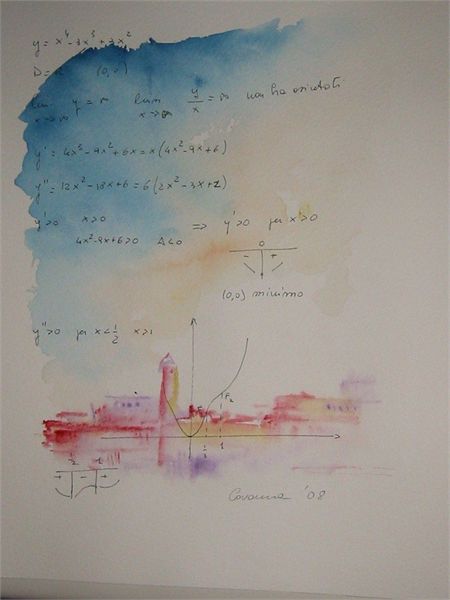 y = x⁴-3x³+3x²
D = R (0,0)
lim y = ∞ lim y/x = ∞ non ha asintoti
x→∞ x→∞
y' = 4x³-9x²+6x = x(4x²-9x+6)
y'' = 12x²-18x+6 = 6(2x²-3x+1)
y'>0 x>0 => y'>0 per x>0
4x²-9x+6>0 Δ<0
0
- +
(0,0) minimo
y''>0 per x<1/2 x>1
F₂
1/2 1
1/2 1
+ - +
Cavanna '08